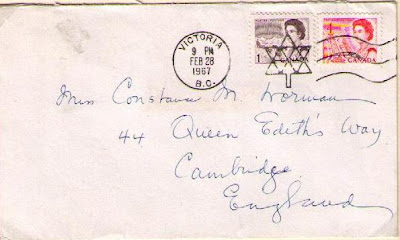 VICTORIA
9 PM
FEB 28
1967
B.C.
1
CANADA
4
CANADA
Miss Constance M. Worman
44 Queen Edith's Way
Cambridge
England